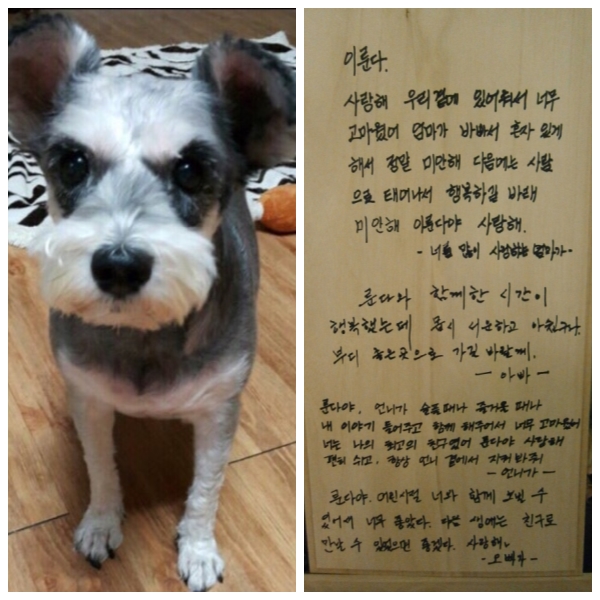 이룬다.
사랑해 우리곁에 있어줘서 너무
고마웠어 엄마가 바빠서 혼자 있게
해서 정말 미안해 다음에는 사람
으로 태어나서 행복하길 바래
미안해 이룬다야 사랑해.
- 너를 많이 사랑하는 엄마가 -
룬다와 함께한 시간이
행복했는데 몹시 서운하고 아쉽구나.
부디 좋은곳으로 가길 바랄께.
- 아빠 -
룬다야. 언니가 슬플때나 즐거울 때나
내 이야기 들어주고 함께 해주어서 너무 고마웠어
너는 나의 최고의 친구였어 룬다야 사랑해
편히 쉬고. 항상 언니 곁에서 지켜봐줘
- 언니가 -
룬다야. 어린시절 너와 함께 보낼 수
있어서 너무 좋았다. 다음 생에는 친구로
만날 수 있었으면 좋겠다. 사랑해.
- 오빠가 -